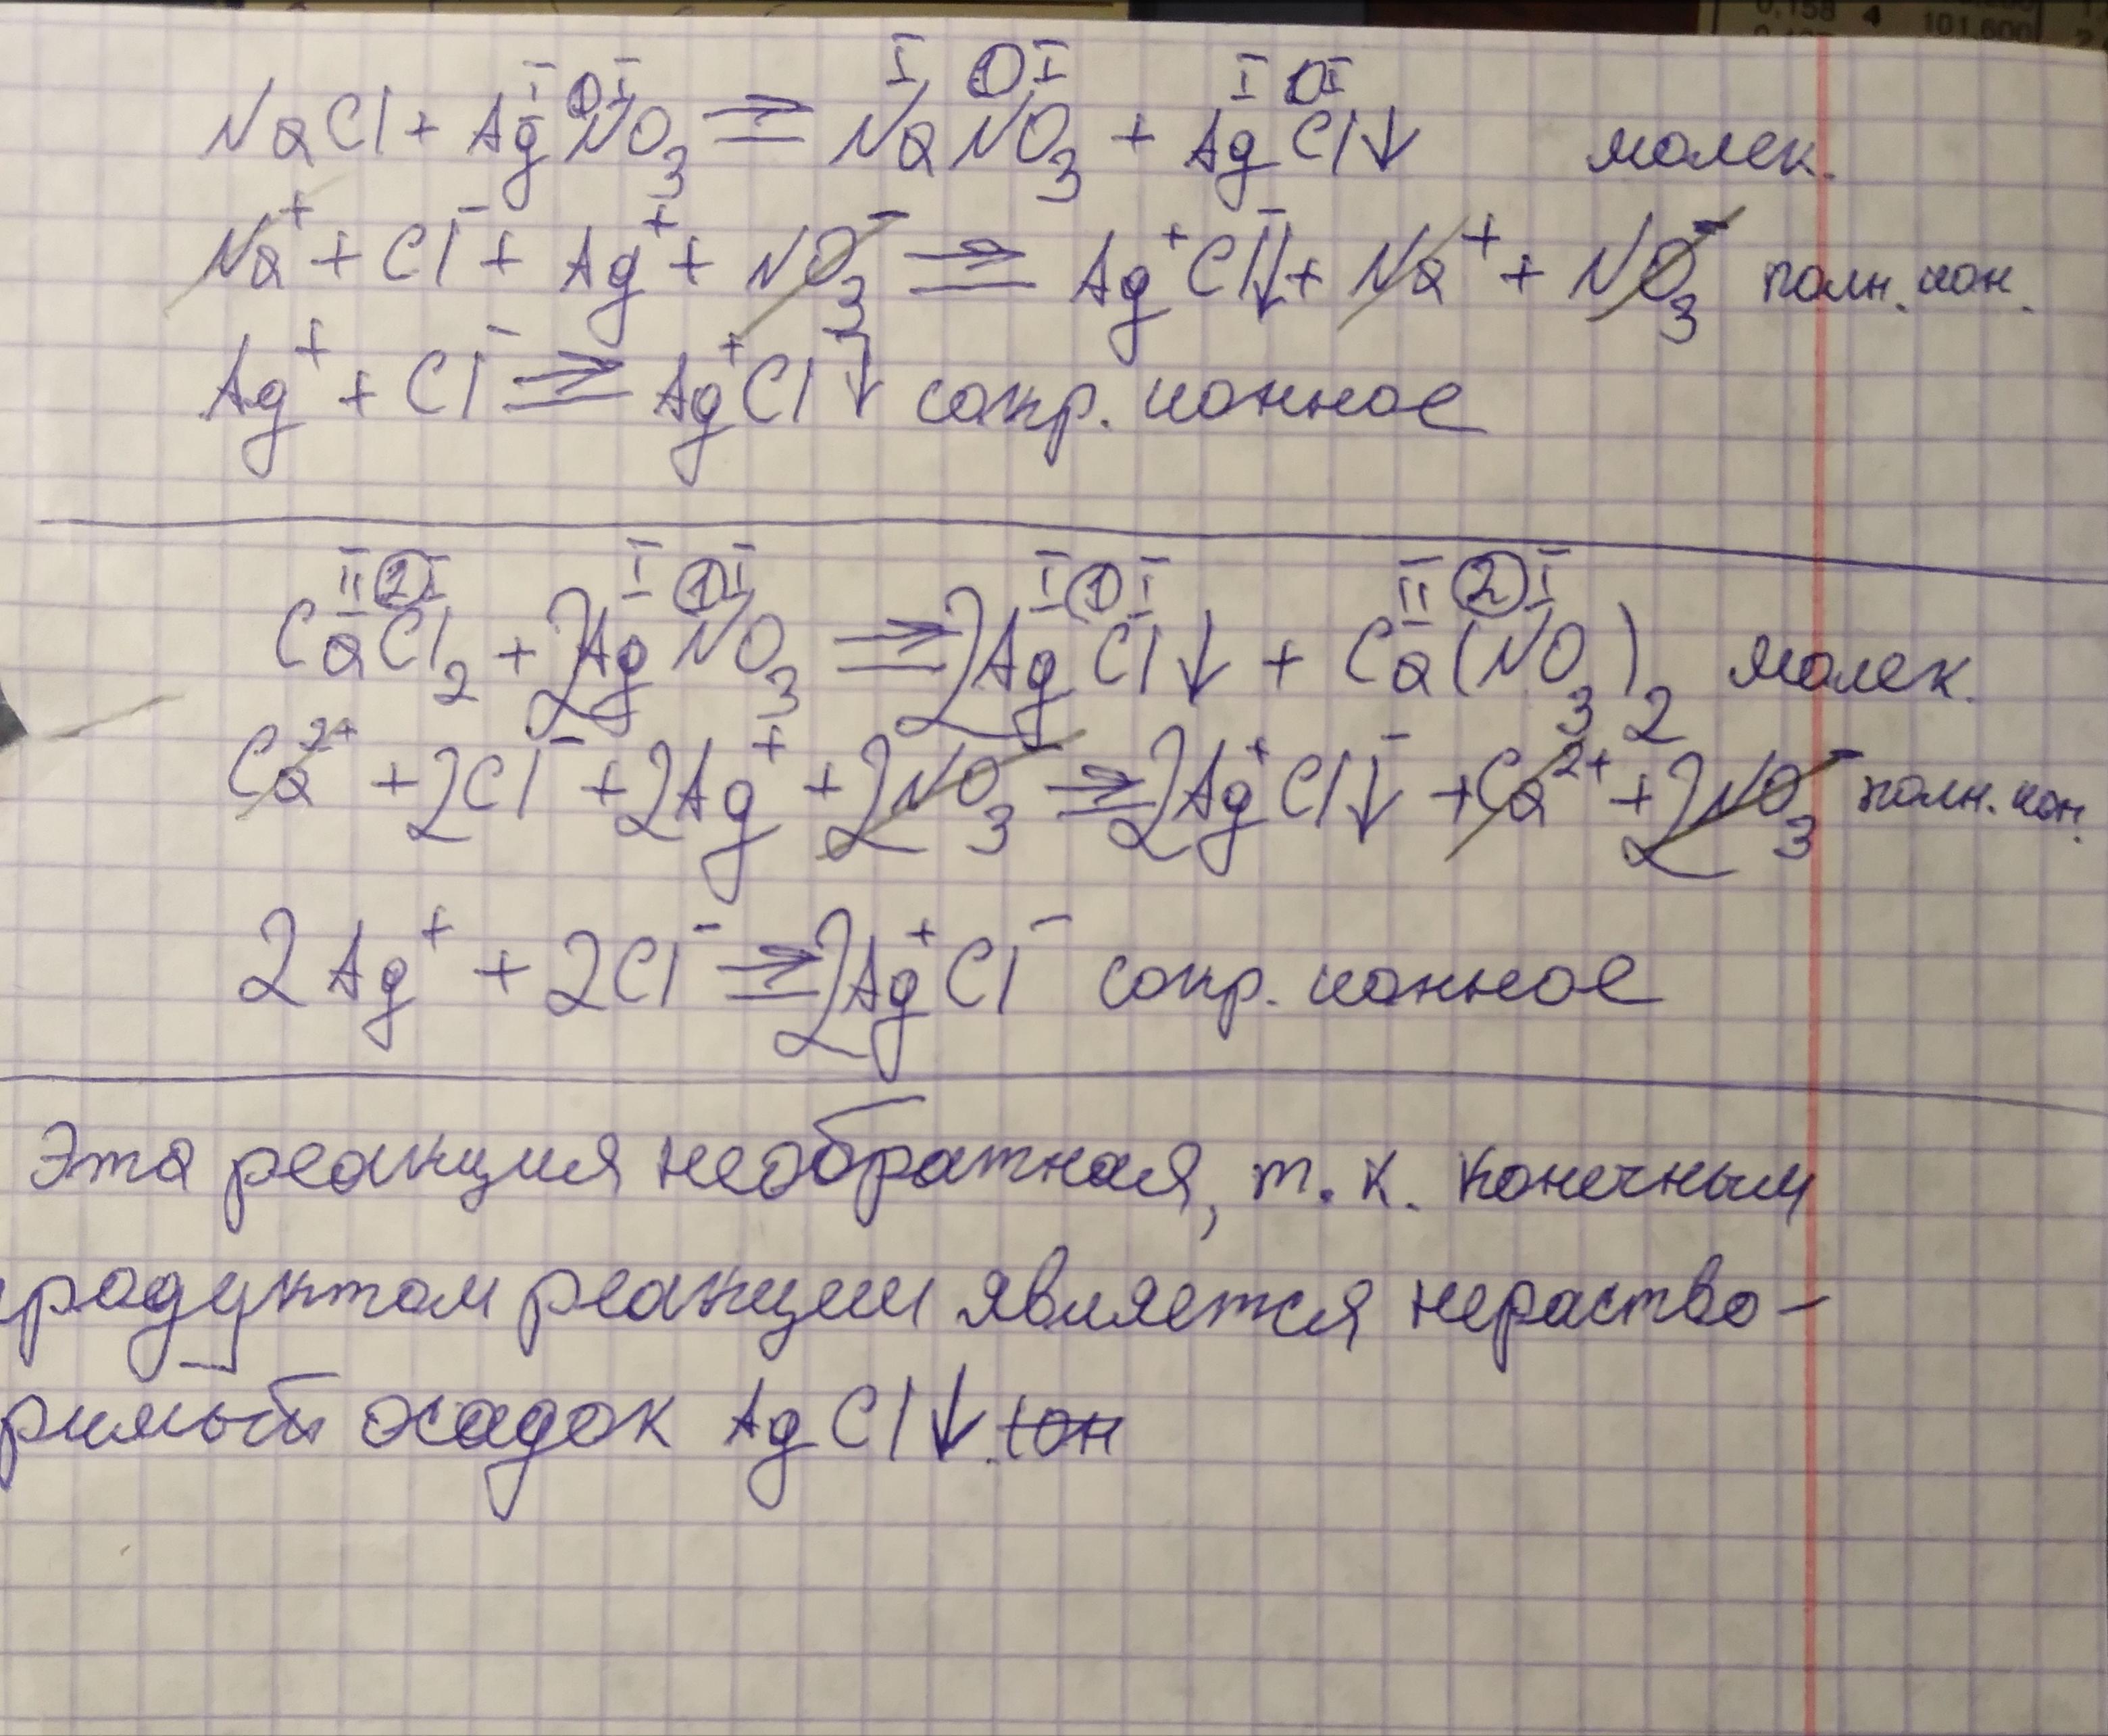 0,158 4 101,600
I ① I I ① I I ① I
NaCl + AgNO₃ ⇒ NaNO₃ + AgCl↓ молек.
Na⁺ + Cl⁻ + Ag⁺ + NO₃⁻ ⇒ Ag⁺Cl⁻↓ + Na⁺ + NO₃⁻ полн. ион.
Ag⁺ + Cl⁻ ⇒ Ag⁺Cl⁻↓ сокр. ионное
II ② I I ① I I ① I II ② I
CaCl₂ + 2AgNO₃ ⇒ 2AgCl↓ + Ca(NO₃)₂ молек.
Ca²⁺ + 2Cl⁻ + 2Ag⁺ + 2NO₃⁻ ⇒ 2Ag⁺Cl⁻↓ + Ca²⁺ + 2NO₃⁻ полн. ион.
2Ag⁺ + 2Cl⁻ ⇒ 2Ag⁺Cl⁻ сокр. ионное
Эта реакция необратная, т. к. конечным
родуктом реакции является нераство-
римый осадок AgCl↓.